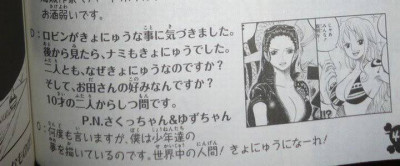 お酒弱いです。
D：ロビンがきょにゅうな事に気づきました。
後から見たら、ナミもきょにゅうでした。
二人とも、なぜきょにゅうなのですか？
そして、お田さんの好みなんですか？
10才の二人からしつ問です。
P.N.さくっちゃん&ゆずちゃん
O：何度も言いますが、僕は少年達の
夢を描いているのです。世界中の人間！きょにゅうになーれ！